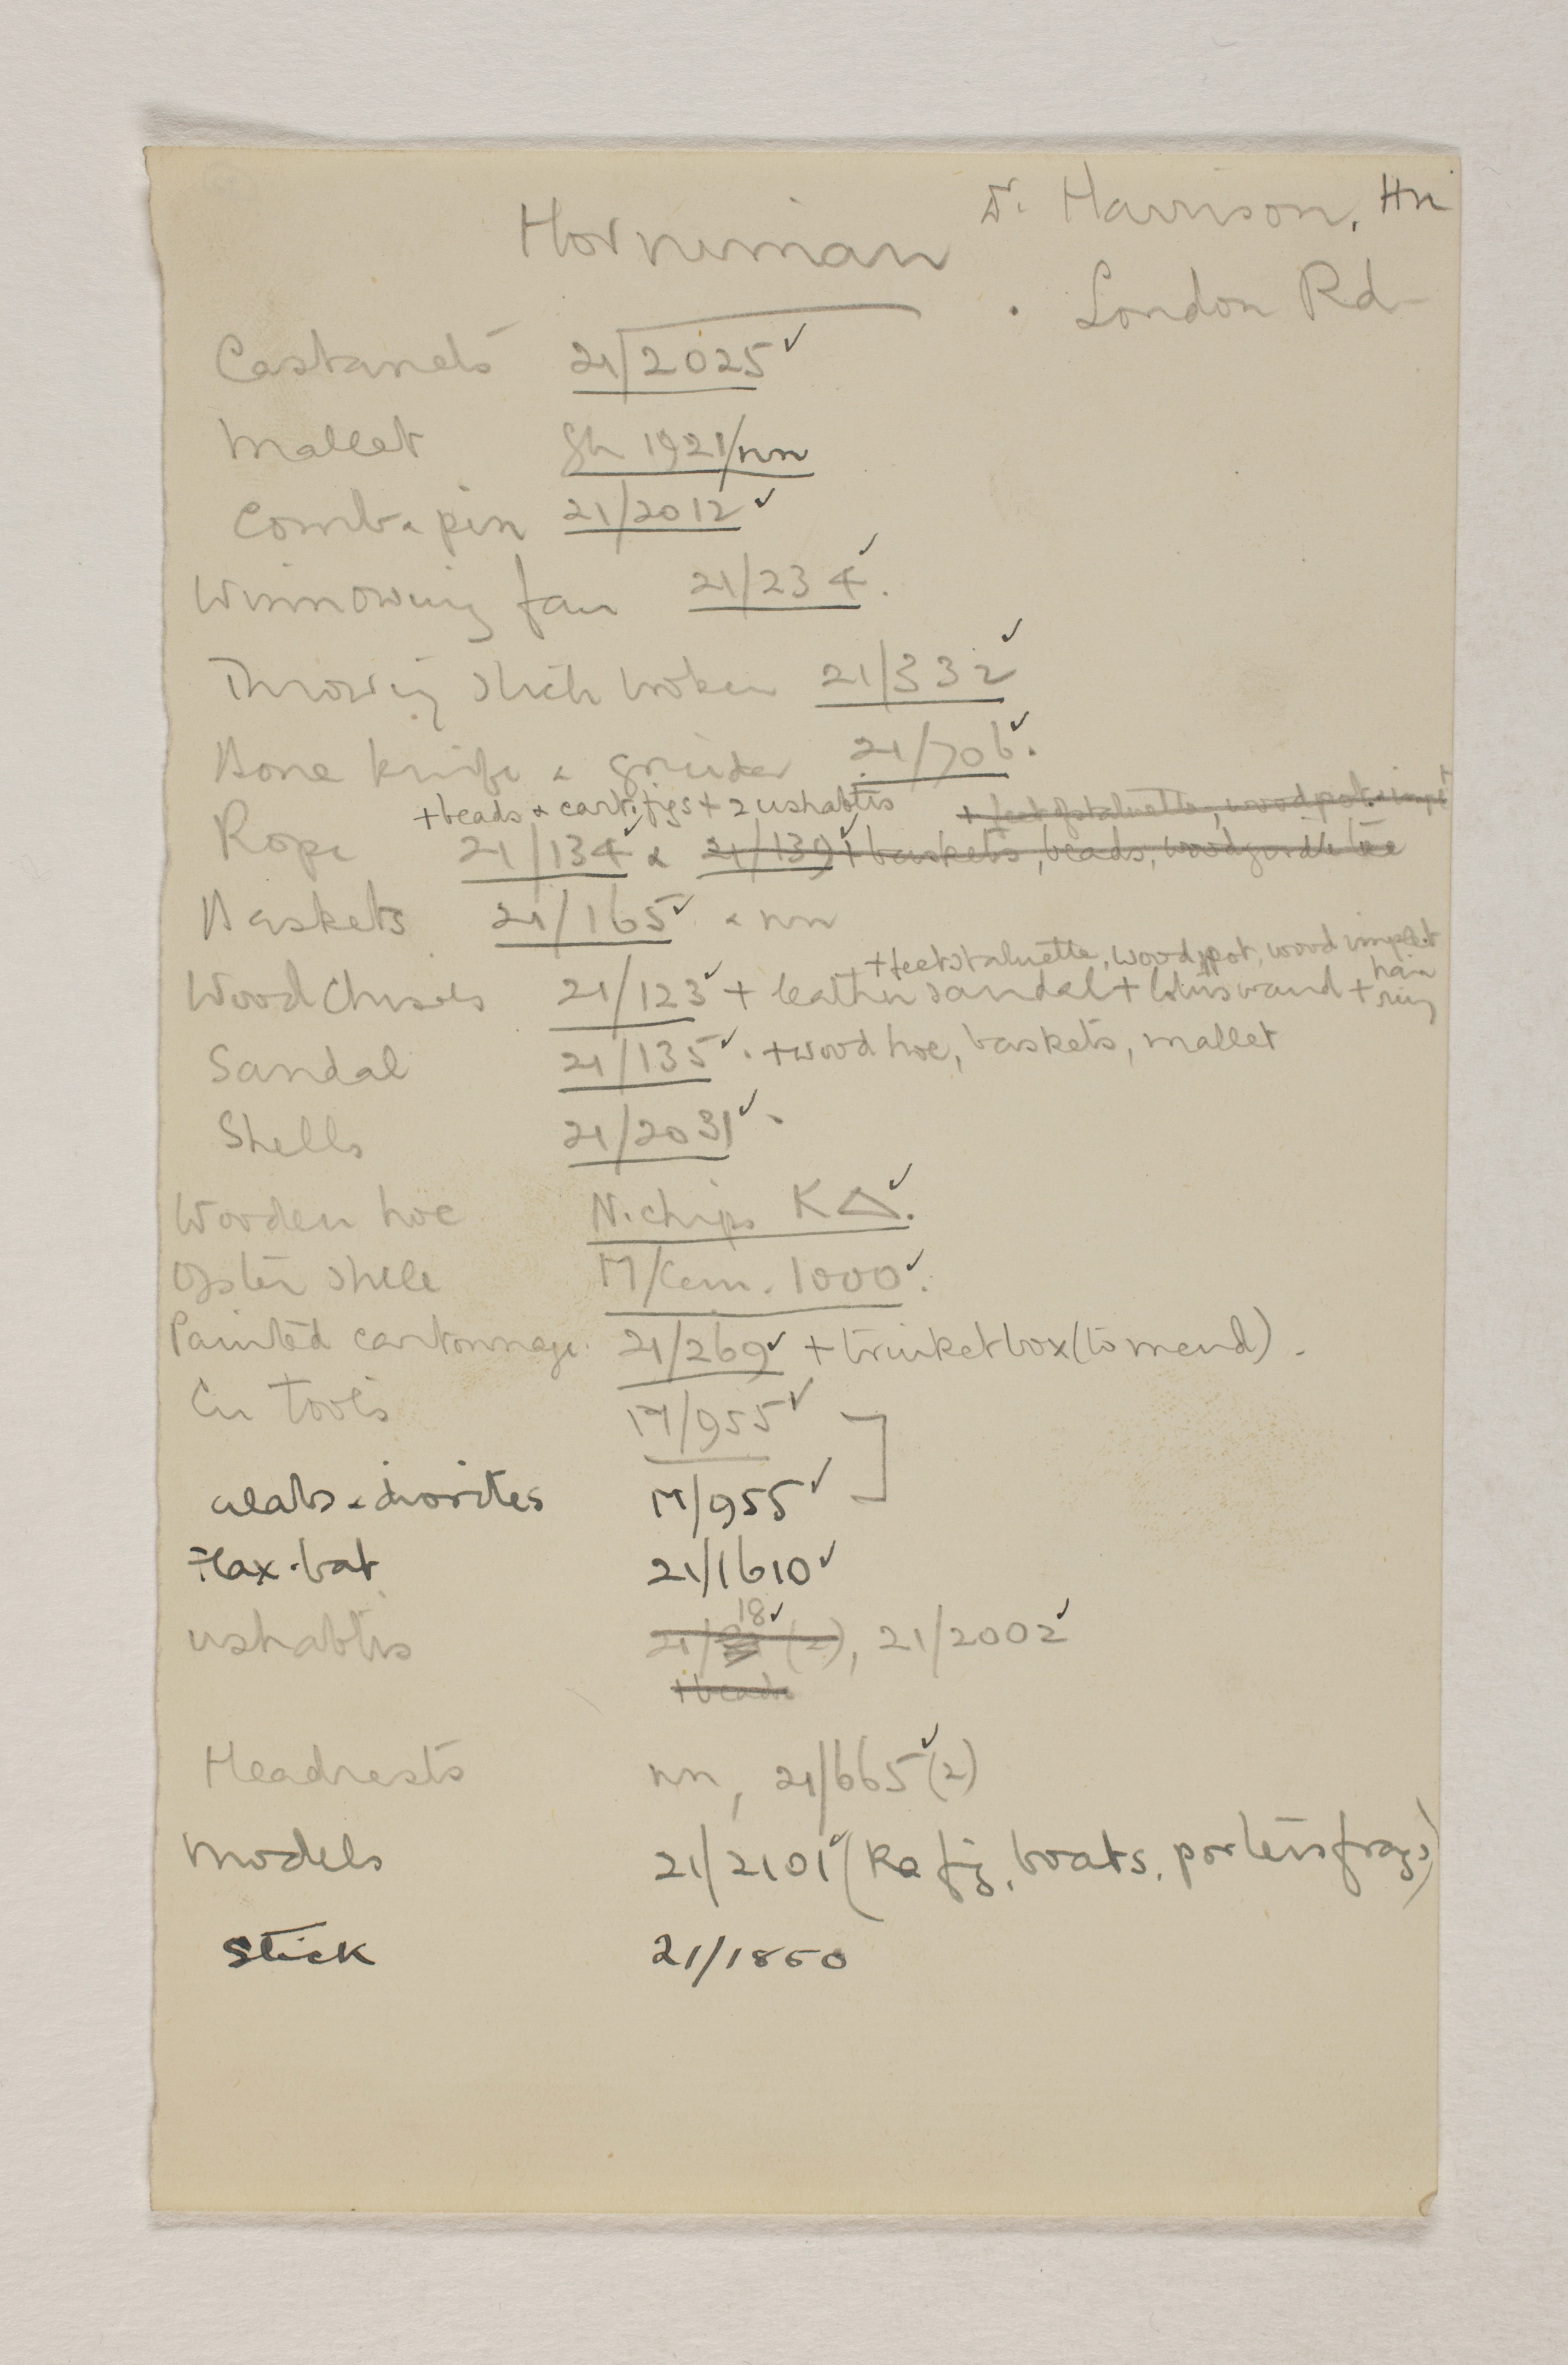 Horniman Dr. Harrison, Hn
London Rd
Castanets 21/2025 ✓
Mallet Gh 1921/nn
Comb & pin 21/2012 ✓
Winnowing fan 21/234 ✓.
Throwing stick broken 21/332 ✓
Bone knife & grinder 21/706 ✓.
+ beads & cart. figs + 2 ushabtis + feet of statuette, wood pot & impt
Rope 21/134 ✓ & 21/139 ✓ + baskets, beads, wood
Baskets 21/165 ✓ & nn
+ feet statuette, wood pot, wood implet
Wood Chisels 21/123 ✓ + leather sandal + lotus wand + hair ring
Sandal 21/135 ✓. + wood hoe, baskets, mallet
Shells 21/2031 ✓.
Wooden hoe N. chips K△ ✓.
Oyster shell M/Cem. 1000 ✓.
Painted cartonnage. 21/269 ✓ + trinket box (to mend).
Cu tools M/955 ✓
alabs & diorites M/955 ✓
Flax-bat 21/1610 ✓
ushabtis 21/ 18 ✓ (2), 21/2002 ✓
+ beads
Headrests nn, 21/665 ✓ (2)
Models 21/2101 ✓ (Ka fig, boats, porters frags)
Stick 21/1850